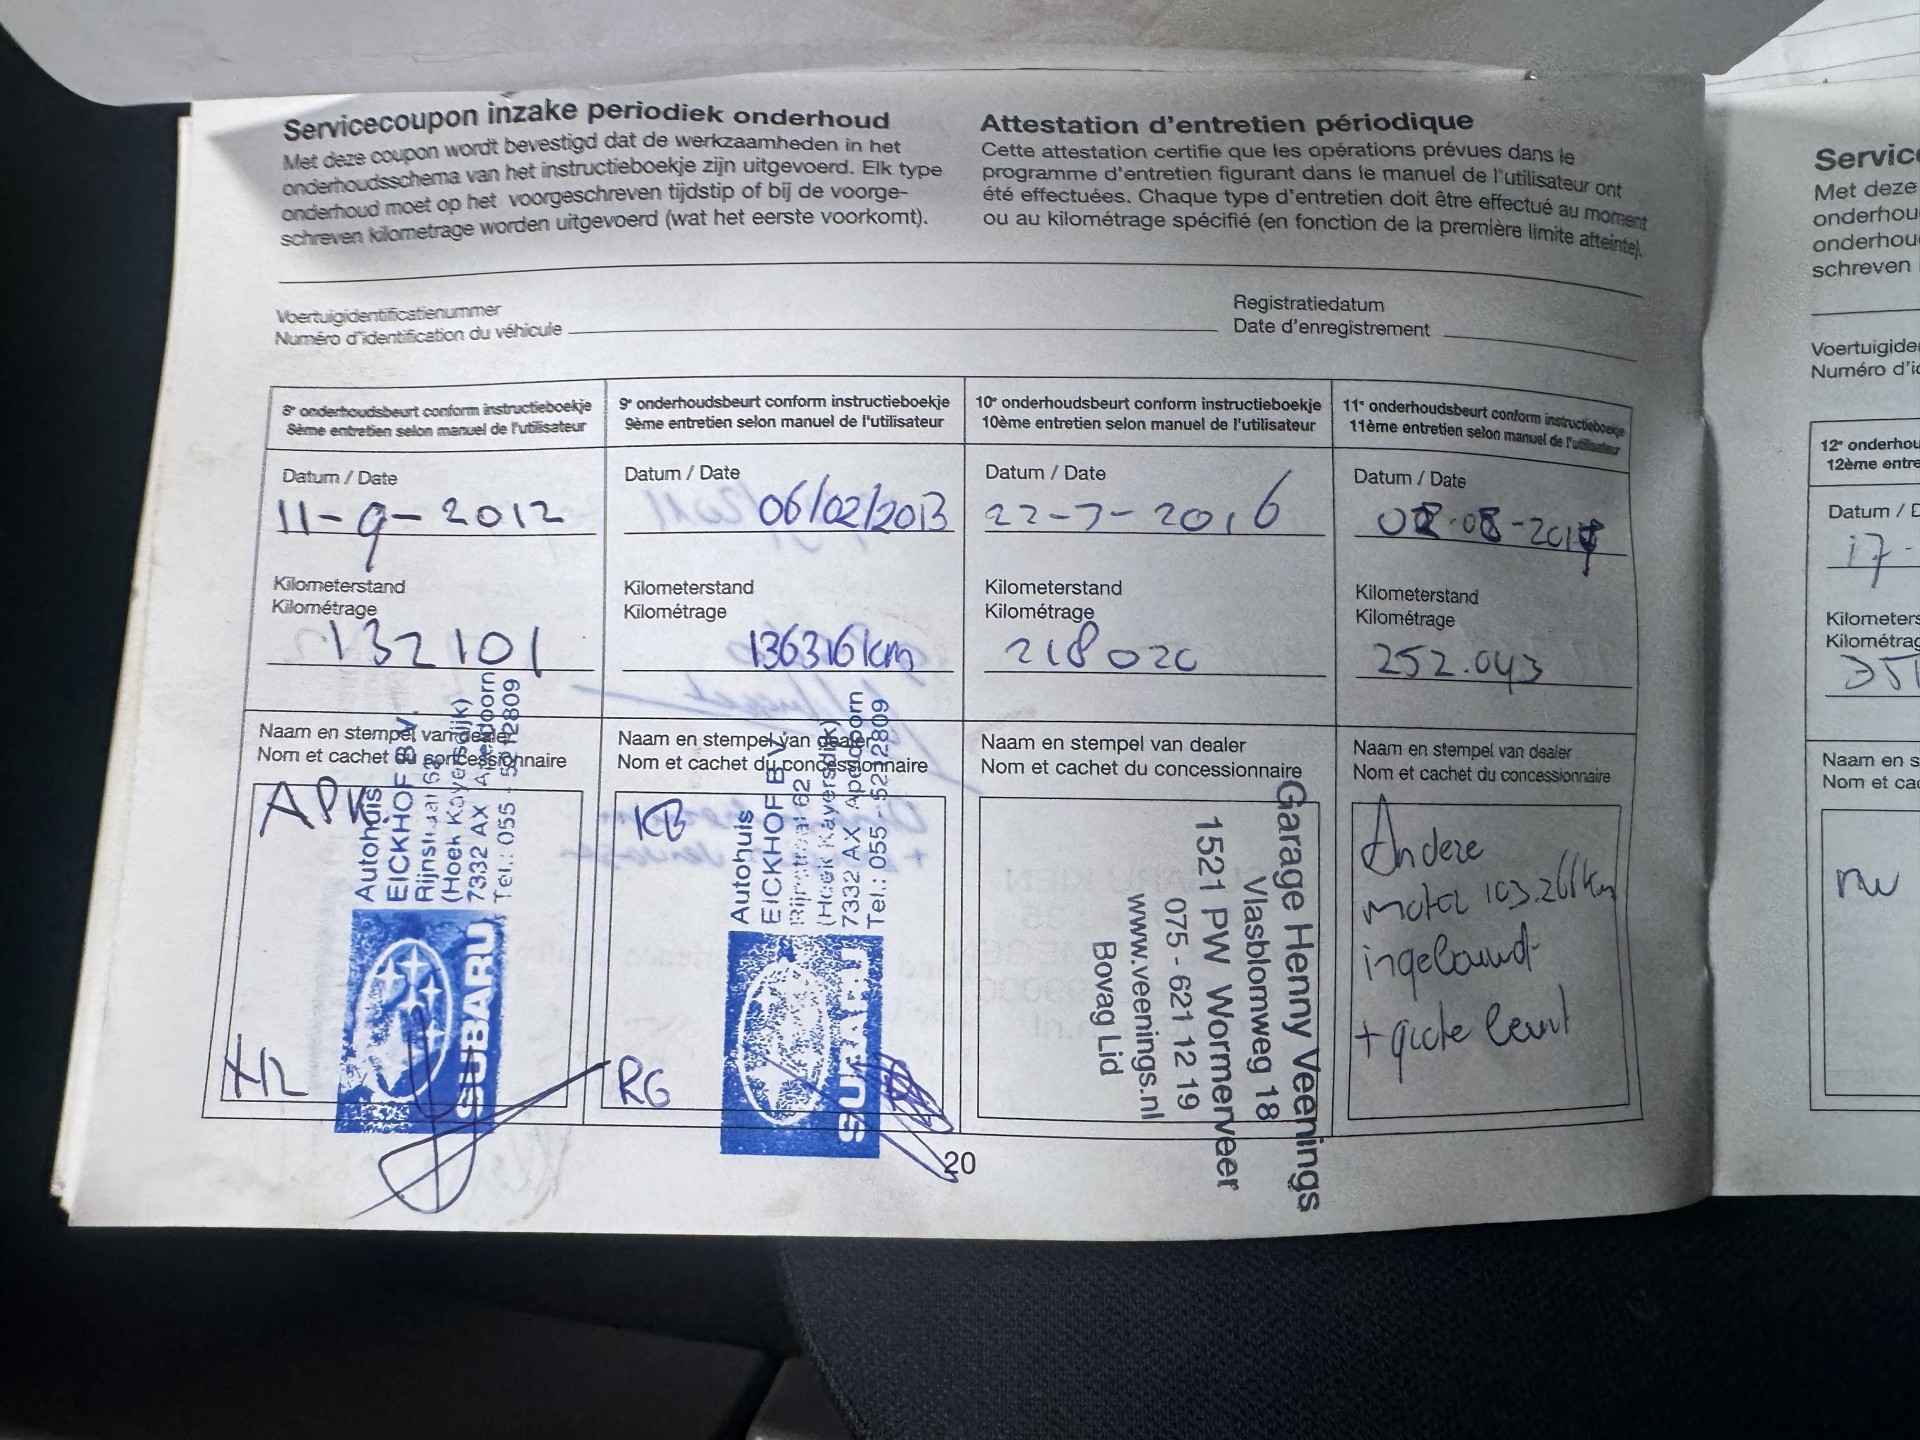 Servicecoupon inzake periodiek onderhoud
Met deze coupon wordt bevestigd dat de werkzaamheden in het
onderhoudsschema van het instructieboekje zijn uitgevoerd. Elk type
onderhoud moet op het voorgeschreven tijdstip of bij de voorge-
schreven kilometrage worden uitgevoerd (wat het eerste voorkomt).
Attestation d'entretien périodique
Cette attestation certifie que les opérations prévues dans le
programme d'entretien figurant dans le manuel de l'utilisateur ont
été effectuées. Chaque type d'entretien doit être effectué au moment
ou au kilométrage spécifié (en fonction de la première limite atteinte).
Voertuigidentificatienummer
Numéro d'identification du véhicule
Registratiedatum
Date d'enregistrement
8e onderhoudsbeurt conform instructieboekje
8ème entretien selon manuel de l'utilisateur
Datum / Date
11-9-2012
Kilometerstand
Kilométrage
132101
Naam en stempel van dealer
Nom et cachet du concessionnaire
APK
Autohuis
EICKHOF B.V.
Rijnstraat 62
(Hoek Kayersdijk)
7332 AX Apeldoorn
Tel.: 055 - 5212809
SUBARU
9e onderhoudsbeurt conform instructieboekje
9ème entretien selon manuel de l'utilisateur
Datum / Date
06/02/2013
Kilometerstand
Kilométrage
136316 km
Naam en stempel van dealer
Nom et cachet du concessionnaire
KB
Autohuis
EICKHOF B.V.
Rijnstraat 62
(Hoek Kayersdijk)
7332 AX Apeldoorn
Tel.: 055 - 5212809
SUBARU
RG
10e onderhoudsbeurt conform instructieboekje
10ème entretien selon manuel de l'utilisateur
Datum / Date
22-7-2016
Kilometerstand
Kilométrage
218020
Naam en stempel van dealer
Nom et cachet du concessionnaire
Garage Henny Veenings
Vlasblomweg 18
1521 PW Wormerveer
075 - 621 12 19
www.veenings.nl
Bovag Lid
11e onderhoudsbeurt conform instructieboekje
11ème entretien selon manuel de l'utilisateur
Datum / Date
Kilometerstand
Kilométrage
252.043
Naam en stempel van dealer
Nom et cachet du concessionnaire
Andere
motor 103.266 km
ingebouwd
+ grote beurt
20
Service
Met deze
onderhou
onderhou
schreven
Voertuigide
Numéro d'id
12e onderhou
12ème entre
Datum / D
17-
Kilometers
Kilométrag
Naam en s
Nom et ca